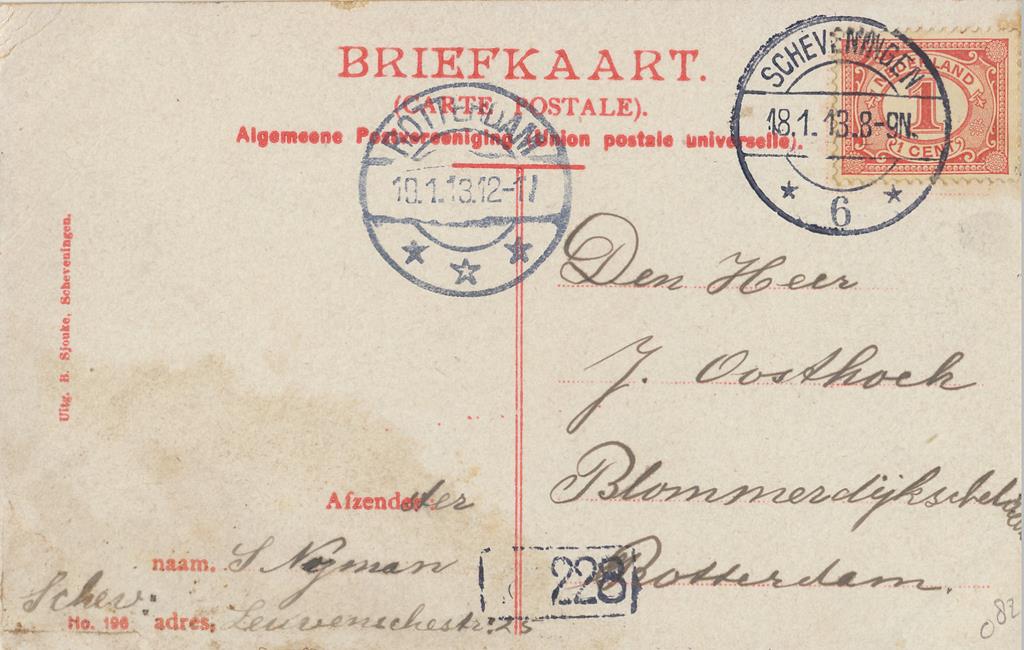 BRIEFKAART.
(CARTE POSTALE).
Algemeene Postvereeniging (Union postale universelle).
SCHEVENINGEN
18.1.13.8-9N.
6
NEDERLAND
1
1 CENT
ROTTERDAM
19.1.13.12-1
Uitg. B. Sjouke, Scheveningen.
Den Heer
J. Oosthoek
Blommerdijksche
Rotterdam.
Afzender:
ster
naam, S Nijman
Schev:
No. 196 adres, Leuvenschestr: 25
228
082